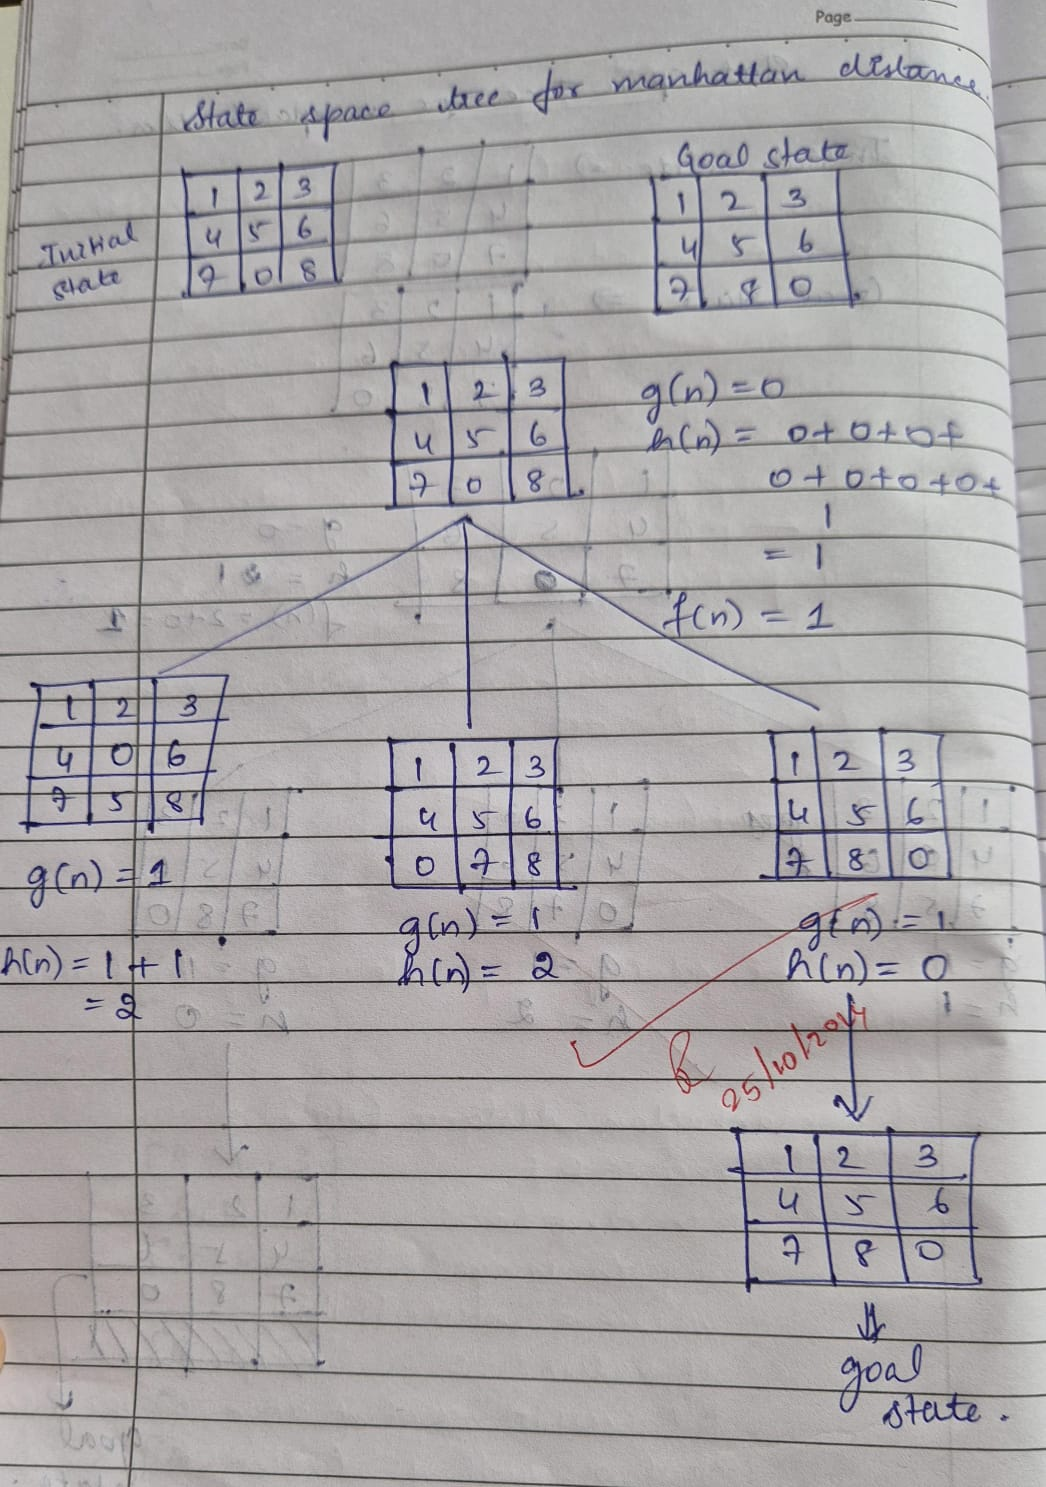 Page
State space tree for manhattan distance.
Initial state
1 2 3
4 5 6
7 0 8
Goal state
1 2 3
4 5 6
7 8 0
1 2 3
4 5 6
7 0 8
g(n) = 0
h(n) = 0 + 0 + 0 +
0 + 0 + 0 + 0 +
1
= 1
f(n) = 1
1 2 3
4 0 6
7 5 8
g(n) = 1
h(n) = 1 + 1
= 2
1 2 3
4 5 6
0 7 8
g(n) = 1
h(n) = 2
1 2 3
4 5 6
7 8 0
g(n) = 1
h(n) = 0
25/10/2024
1 2 3
4 5 6
7 8 0
goal
state.